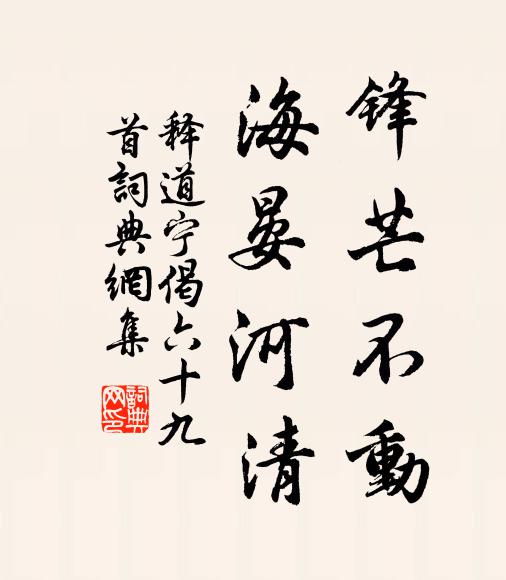 锋芒不動
海晏河清
释道宁偈六十九
首詞典網集
詞典
网印